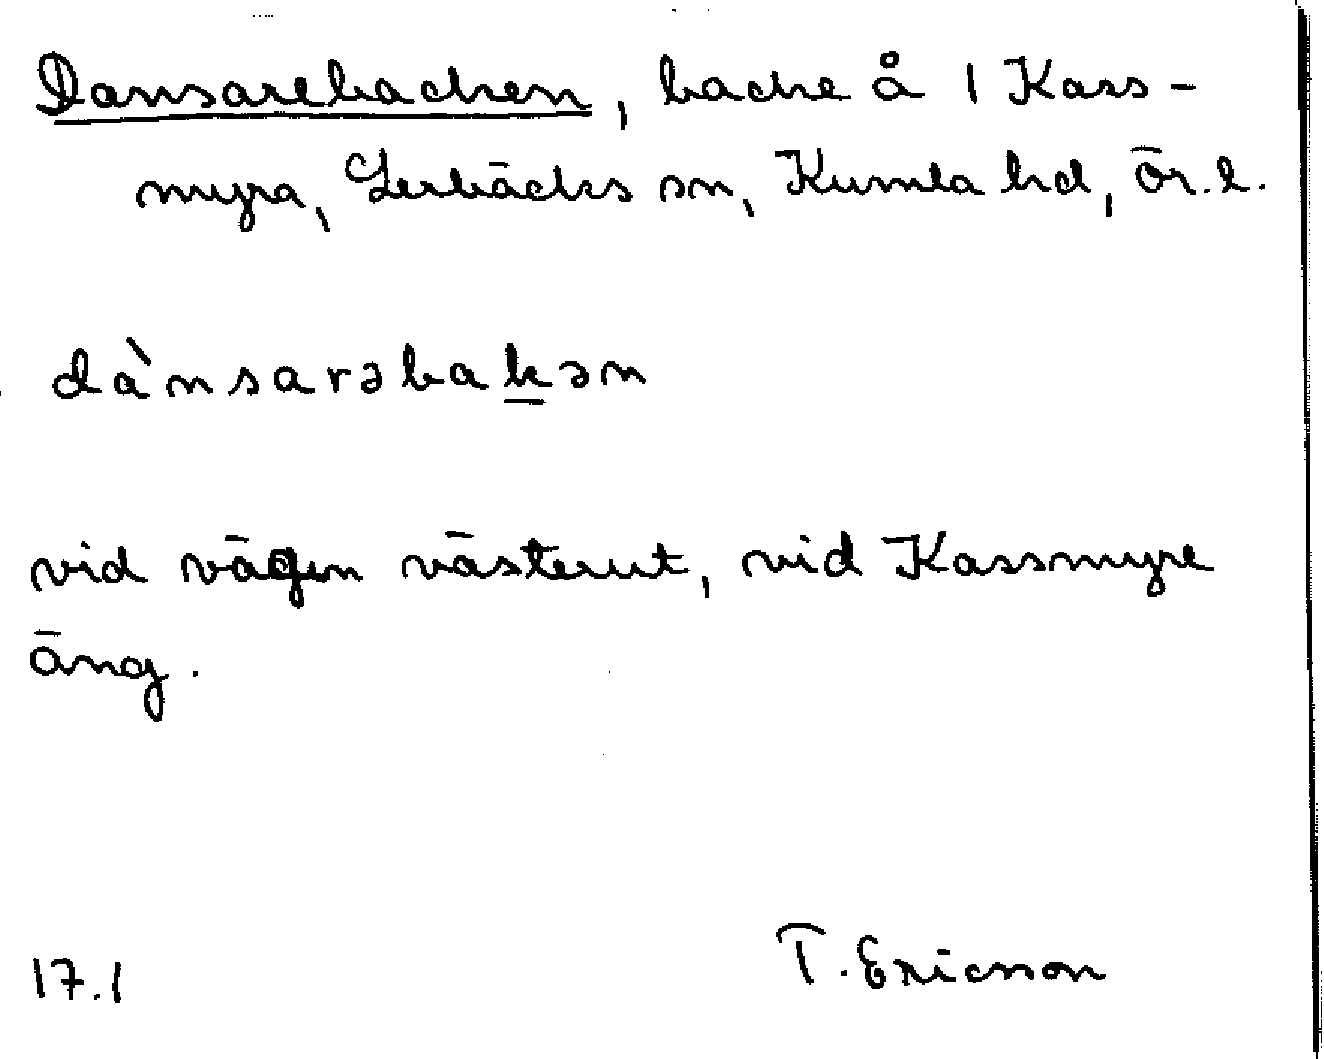 Dansarebacken, backe å 1 Kass-
myra, Lerbäcks sn, Kumla hd, Ör. l.
dànsarəbakən
vid vägen västerut, vid Kassmyre
äng.
17.1 T. Ericsson